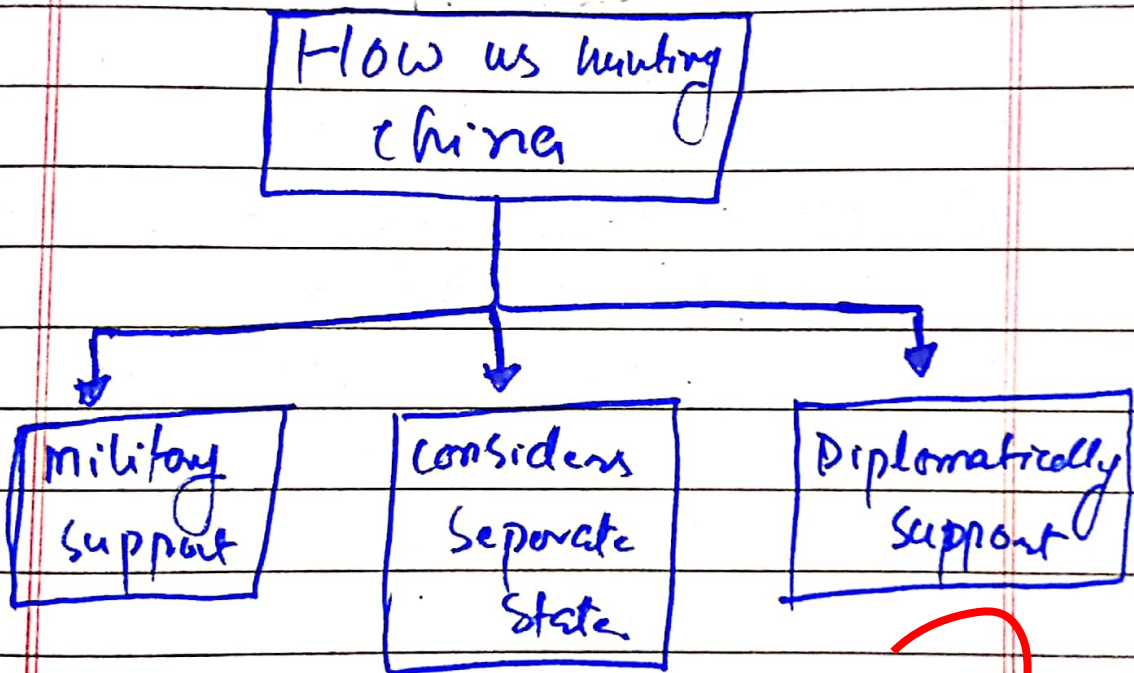 How us hunting
china
military
support
considers
seperate
state
Diplomatically
support